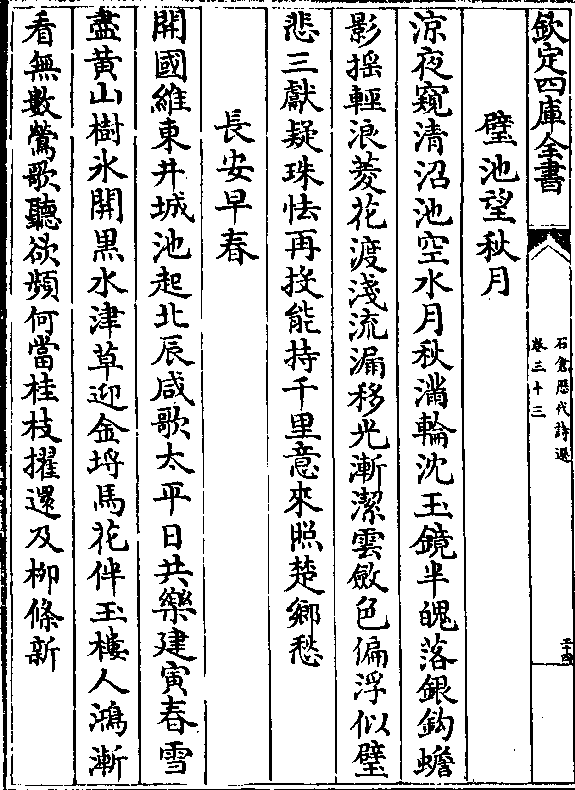 欽定四庫全書
石倉歷代詩選
卷三十三
二十四
璧池望秋月
涼夜窺清沼池空水月秋滿輪沈玉鏡半魄落銀鈎蟾
影搖輕浪菱花渡淺流漏移光漸潔雲斂色偏浮似璧
悲三獻疑珠怯再投能持千里意來照楚鄉愁
長安早春
開國維東井城池起北辰咸歌太平日共樂建寅春雪
盡黃山樹氷開黒水津草迎金埒馬花伴玉樓人鴻漸
看無數鶯歌聽欲頻何當桂枝擢還及柳條新